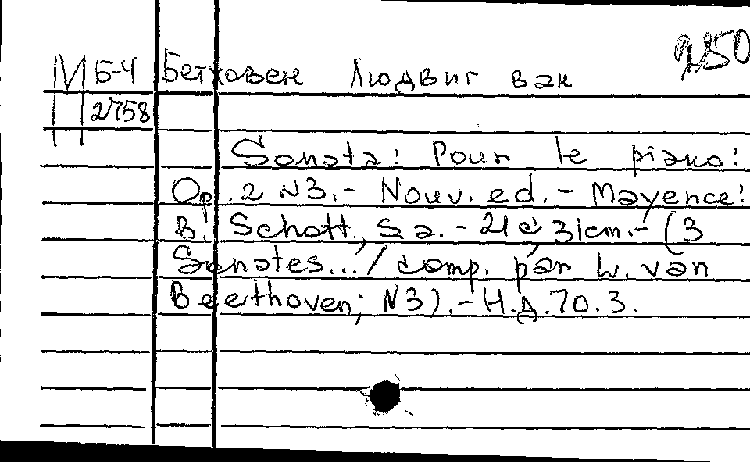 250
М Б-4 Бетховен Людвиг ван
2758
Sonata: Pour le piano:
Op. 2 N3. - Nouv. ed. - Mayence:
B. Schott, S.a. - 21 c; 31cm. - (3
Sonates.../ comp. par L. van
Beethoven; N3). - Н.Д. 70. 3.